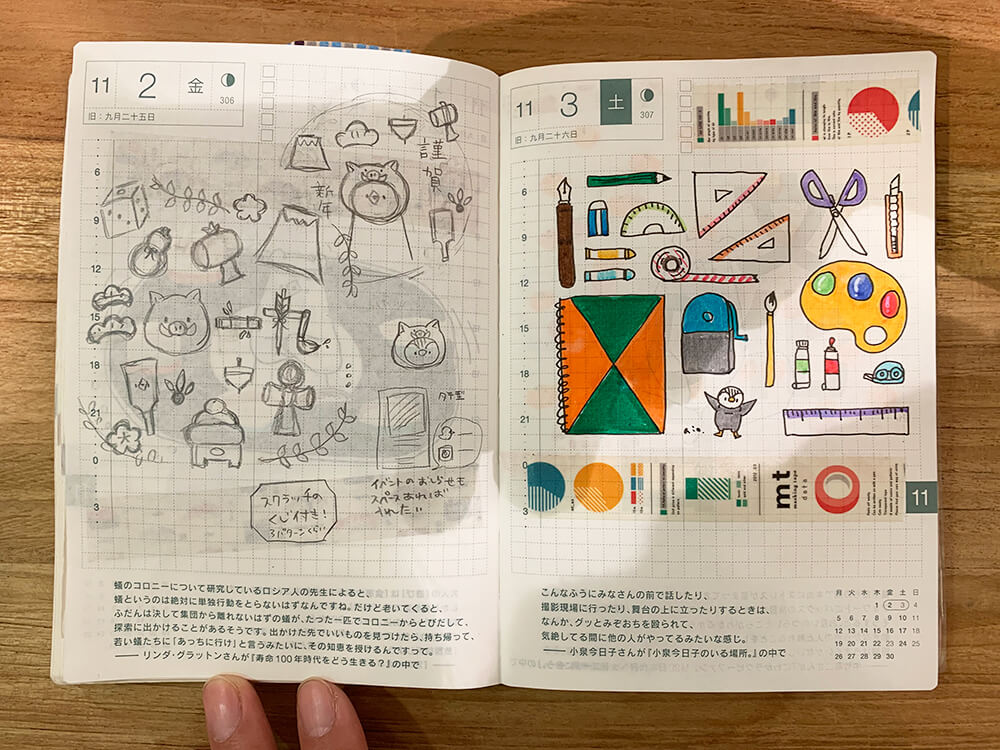 11
2
金
306
旧：九月二十五日
謹賀
新年
タテ型
イベントのお知らせも
スペースあれば
いれたい
スクラッチの
くじ付き!
3パターンくらい
蟻のコロニーについて研究しているロシア人の先生によると、
蟻というのは絶対に単独行動をとらないはずなんですね。だけど老いてくると、
ふだんは決して集団から離れないはずの蟻が、たった一匹でコロニーからとびだして、
探索に出かけることがあるそうです。出かけた先でいいものを見つけたら、持ち帰って、
若い蟻たちに「あっちに行け」と言うみたいに、その知恵を授けるんですって。
—— リンダ・グラットンさんが『寿命100年時代をどう生きる？』の中で
6
9
12
15
18
21
0
3
11
3
土
307
旧：九月二十六日
6
9
12
15
18
21
0
3
mt
masking tape
data
11
こんなふうにみなさんの前で話したり、
撮影現場に行ったり、舞台の上に立ったりするときは、
なんか、グッとみぞおちを殴られて、
気絶してる間に他の人がやってるみたいな感じ。
—— 小泉今日子さんが『小泉今日子のいる場所。』の中で
月 火 水 木 金 土 日
1 2 3 4
5 6 7 8 9 10 11
12 13 14 15 16 17 18
19 20 21 22 23 24 25
26 27 28 29 30